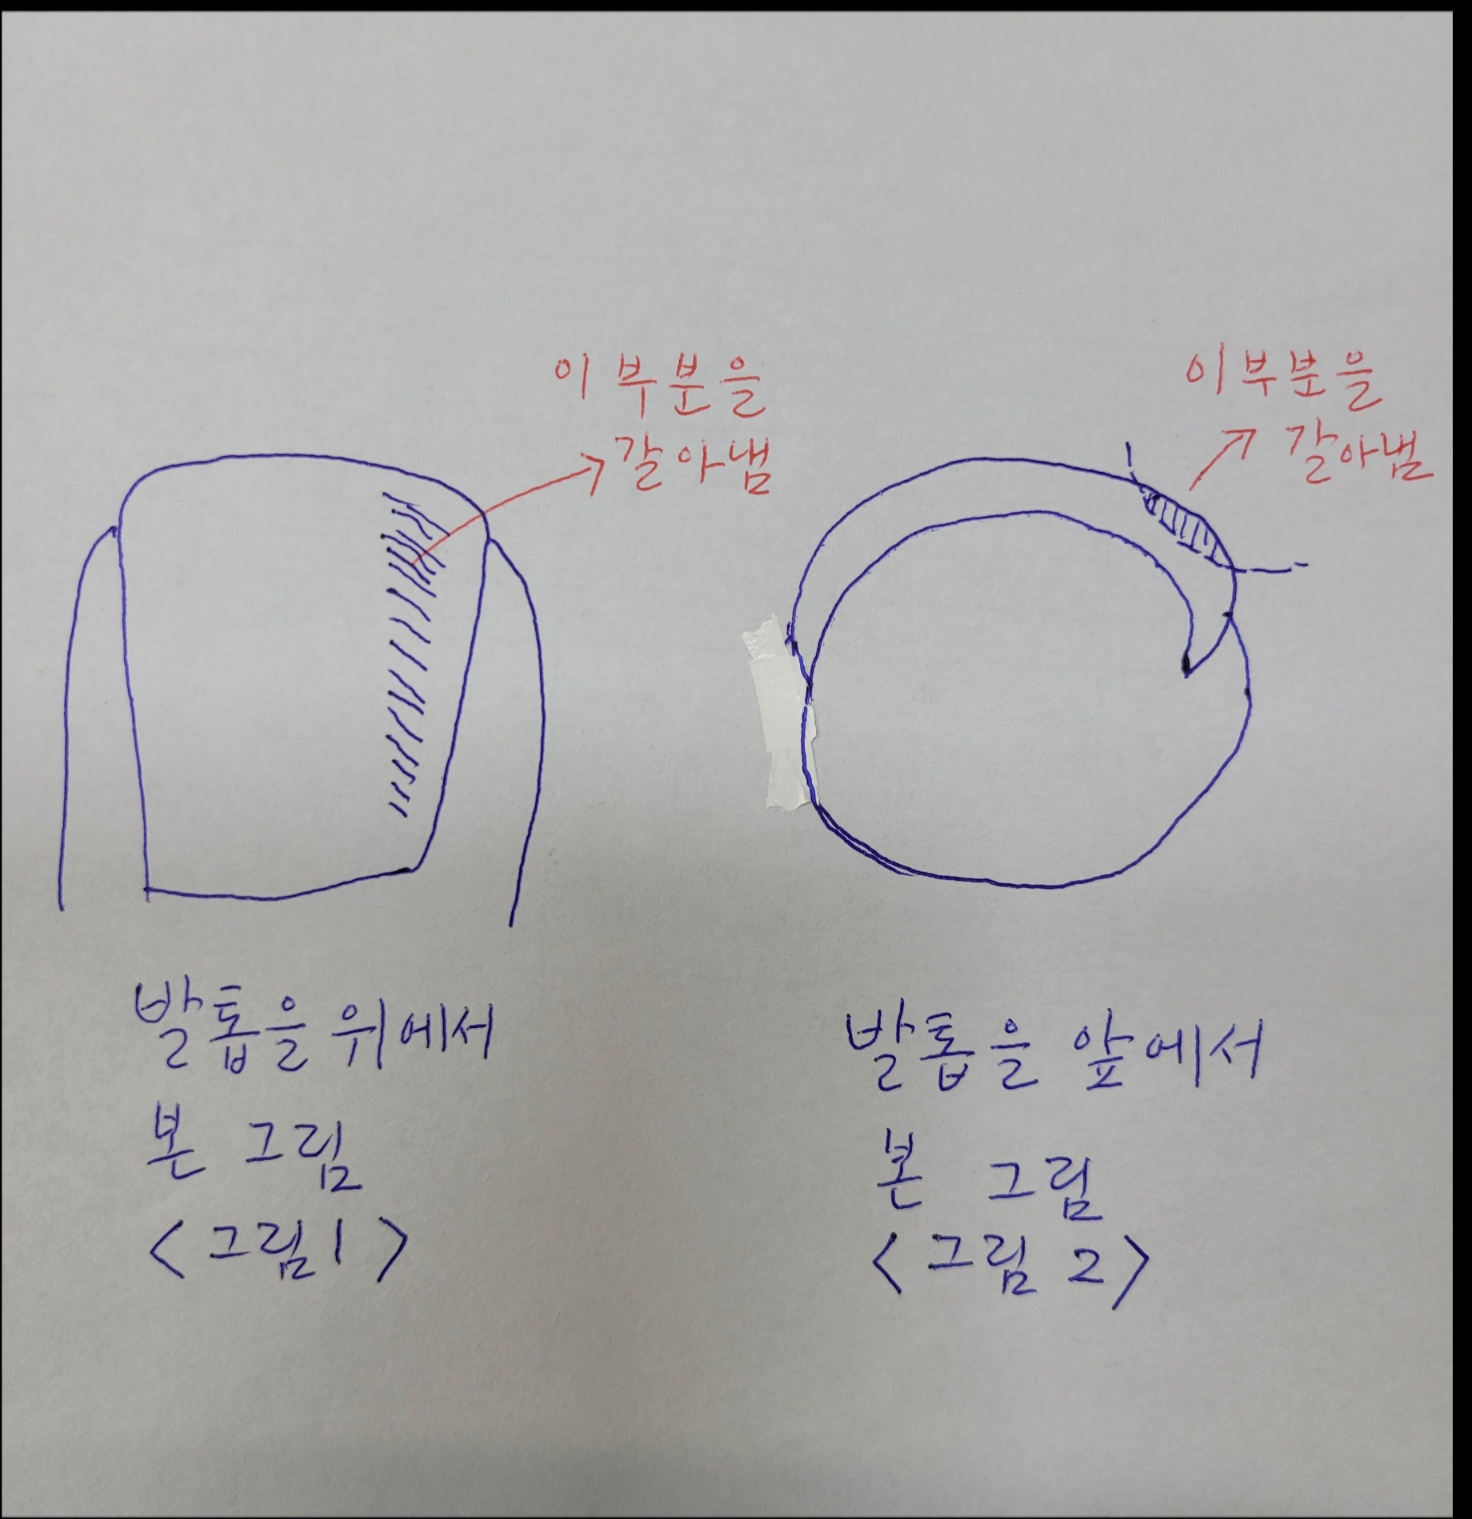 이 부분을
갈아냄
이 부분을
갈아냄
발톱을 위에서
본 그림
<그림1>
발톱을 앞에서
본 그림
<그림 2>